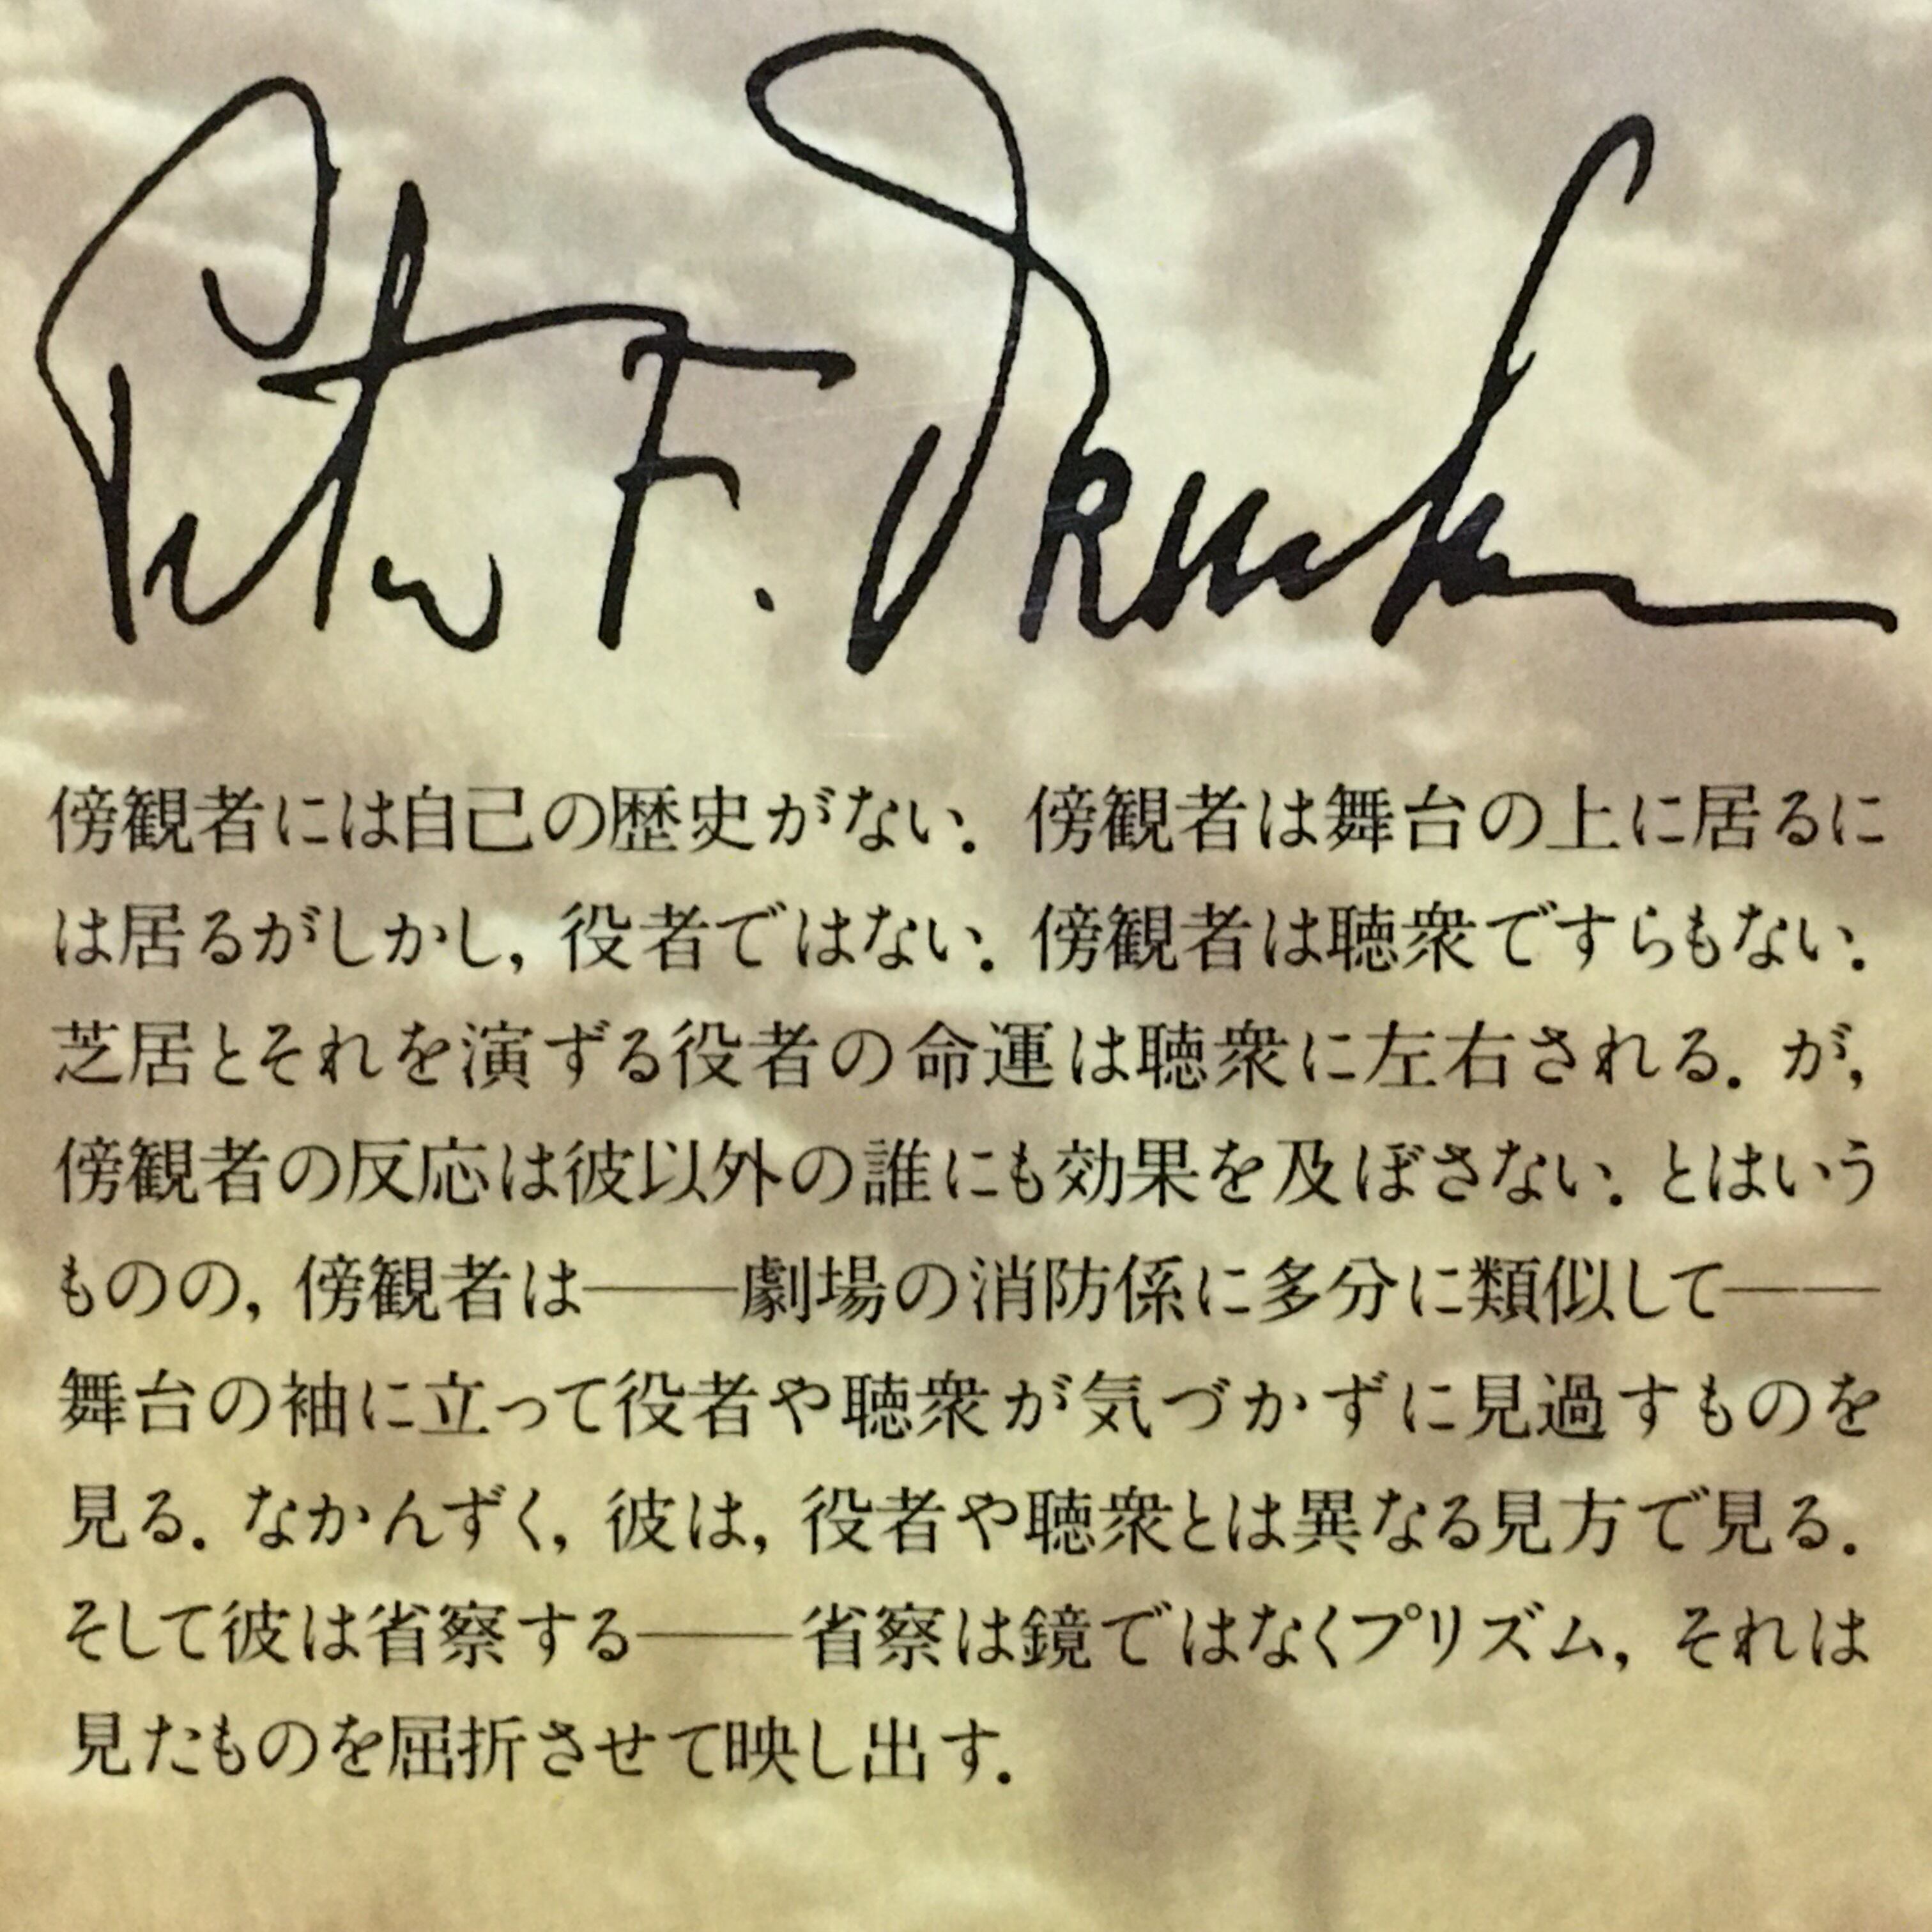 Peter F. Drucker
傍観者には自己の歴史がない．傍観者は舞台の上に居るに
は居るがしかし，役者ではない．傍観者は聴衆ですらもない．
芝居とそれを演ずる役者の命運は聴衆に左右される．が，
傍観者の反応は彼以外の誰にも効果を及ぼさない．とはいう
ものの，傍観者は――劇場の消防係に多分に類似して――
舞台の袖に立って役者や聴衆が気づかずに見過すものを
見る．なかんずく，彼は，役者や聴衆とは異なる見方で見る．
そして彼は省察する――省察は鏡ではなくプリズム，それは
見たものを屈折させて映し出す．